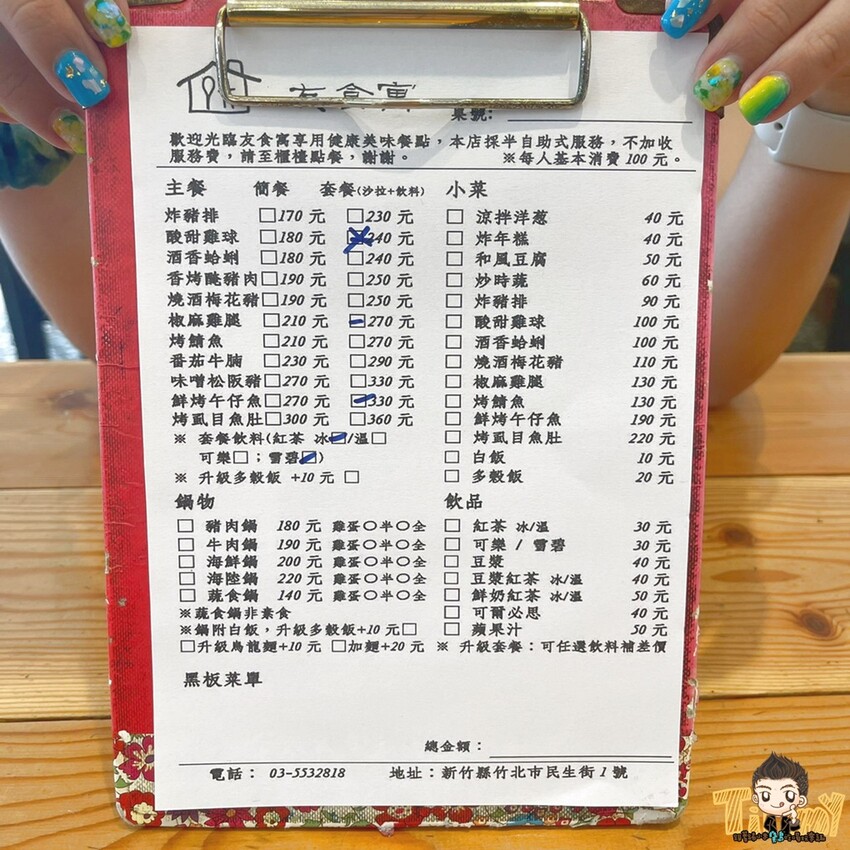 友食寓
桌號：
歡迎光臨友食寓享用健康美味餐點，本店採半自助式服務，不加收
服務費，請至櫃檯點餐，謝謝。 ※每人基本消費 100 元。
主餐 簡餐 套餐(沙拉+飲料)
炸豬排 □170 元 □230 元
酸甜雞球 □180 元 □240 元
酒香蛤蜊 □180 元 □240 元
香烤醃豬肉□190 元 □250 元
燒酒梅花豬□190 元 □250 元
椒麻雞腿 □210 元 □270 元
烤鯖魚 □210 元 □270 元
番茄牛腩 □230 元 □290 元
味噌松阪豬□270 元 □330 元
鮮烤午仔魚□270 元 □330 元
烤虱目魚肚□300 元 □360 元
※ 套餐飲料(紅茶 冰□/溫□
可樂□；雪碧□)
※ 升級多穀飯 +10 元 □
小菜
□ 涼拌洋葱 40 元
□ 炸年糕 40 元
□ 和風豆腐 50 元
□ 炒時蔬 60 元
□ 炸豬排 90 元
□ 酸甜雞球 100 元
□ 酒香蛤蜊 100 元
□ 燒酒梅花豬 110 元
□ 椒麻雞腿 130 元
□ 烤鯖魚 130 元
□ 鮮烤午仔魚 190 元
□ 烤虱目魚肚 220 元
□ 白飯 10 元
□ 多穀飯 20 元
鍋物
□ 豬肉鍋 180 元 雞蛋○半○全
□ 牛肉鍋 190 元 雞蛋○半○全
□ 海鮮鍋 200 元 雞蛋○半○全
□ 海陸鍋 220 元 雞蛋○半○全
□ 蔬食鍋 140 元 雞蛋○半○全
※蔬食鍋非素食
※鍋附白飯，升級多穀飯+10 元□
□升級烏龍麵+10 元 □加麵+20 元
飲品
□ 紅茶 冰/溫 30 元
□ 可樂 / 雪碧 30 元
□ 豆漿 40 元
□ 豆漿紅茶 冰/溫 40 元
□ 鮮奶紅茶 冰/溫 50 元
□ 可爾必思 40 元
□ 蘋果汁 50 元
※ 升級套餐：可任選飲料補差價
黑板菜單
總金額：
電話： 03-5532818 地址：新竹縣竹北市民生街 1 號